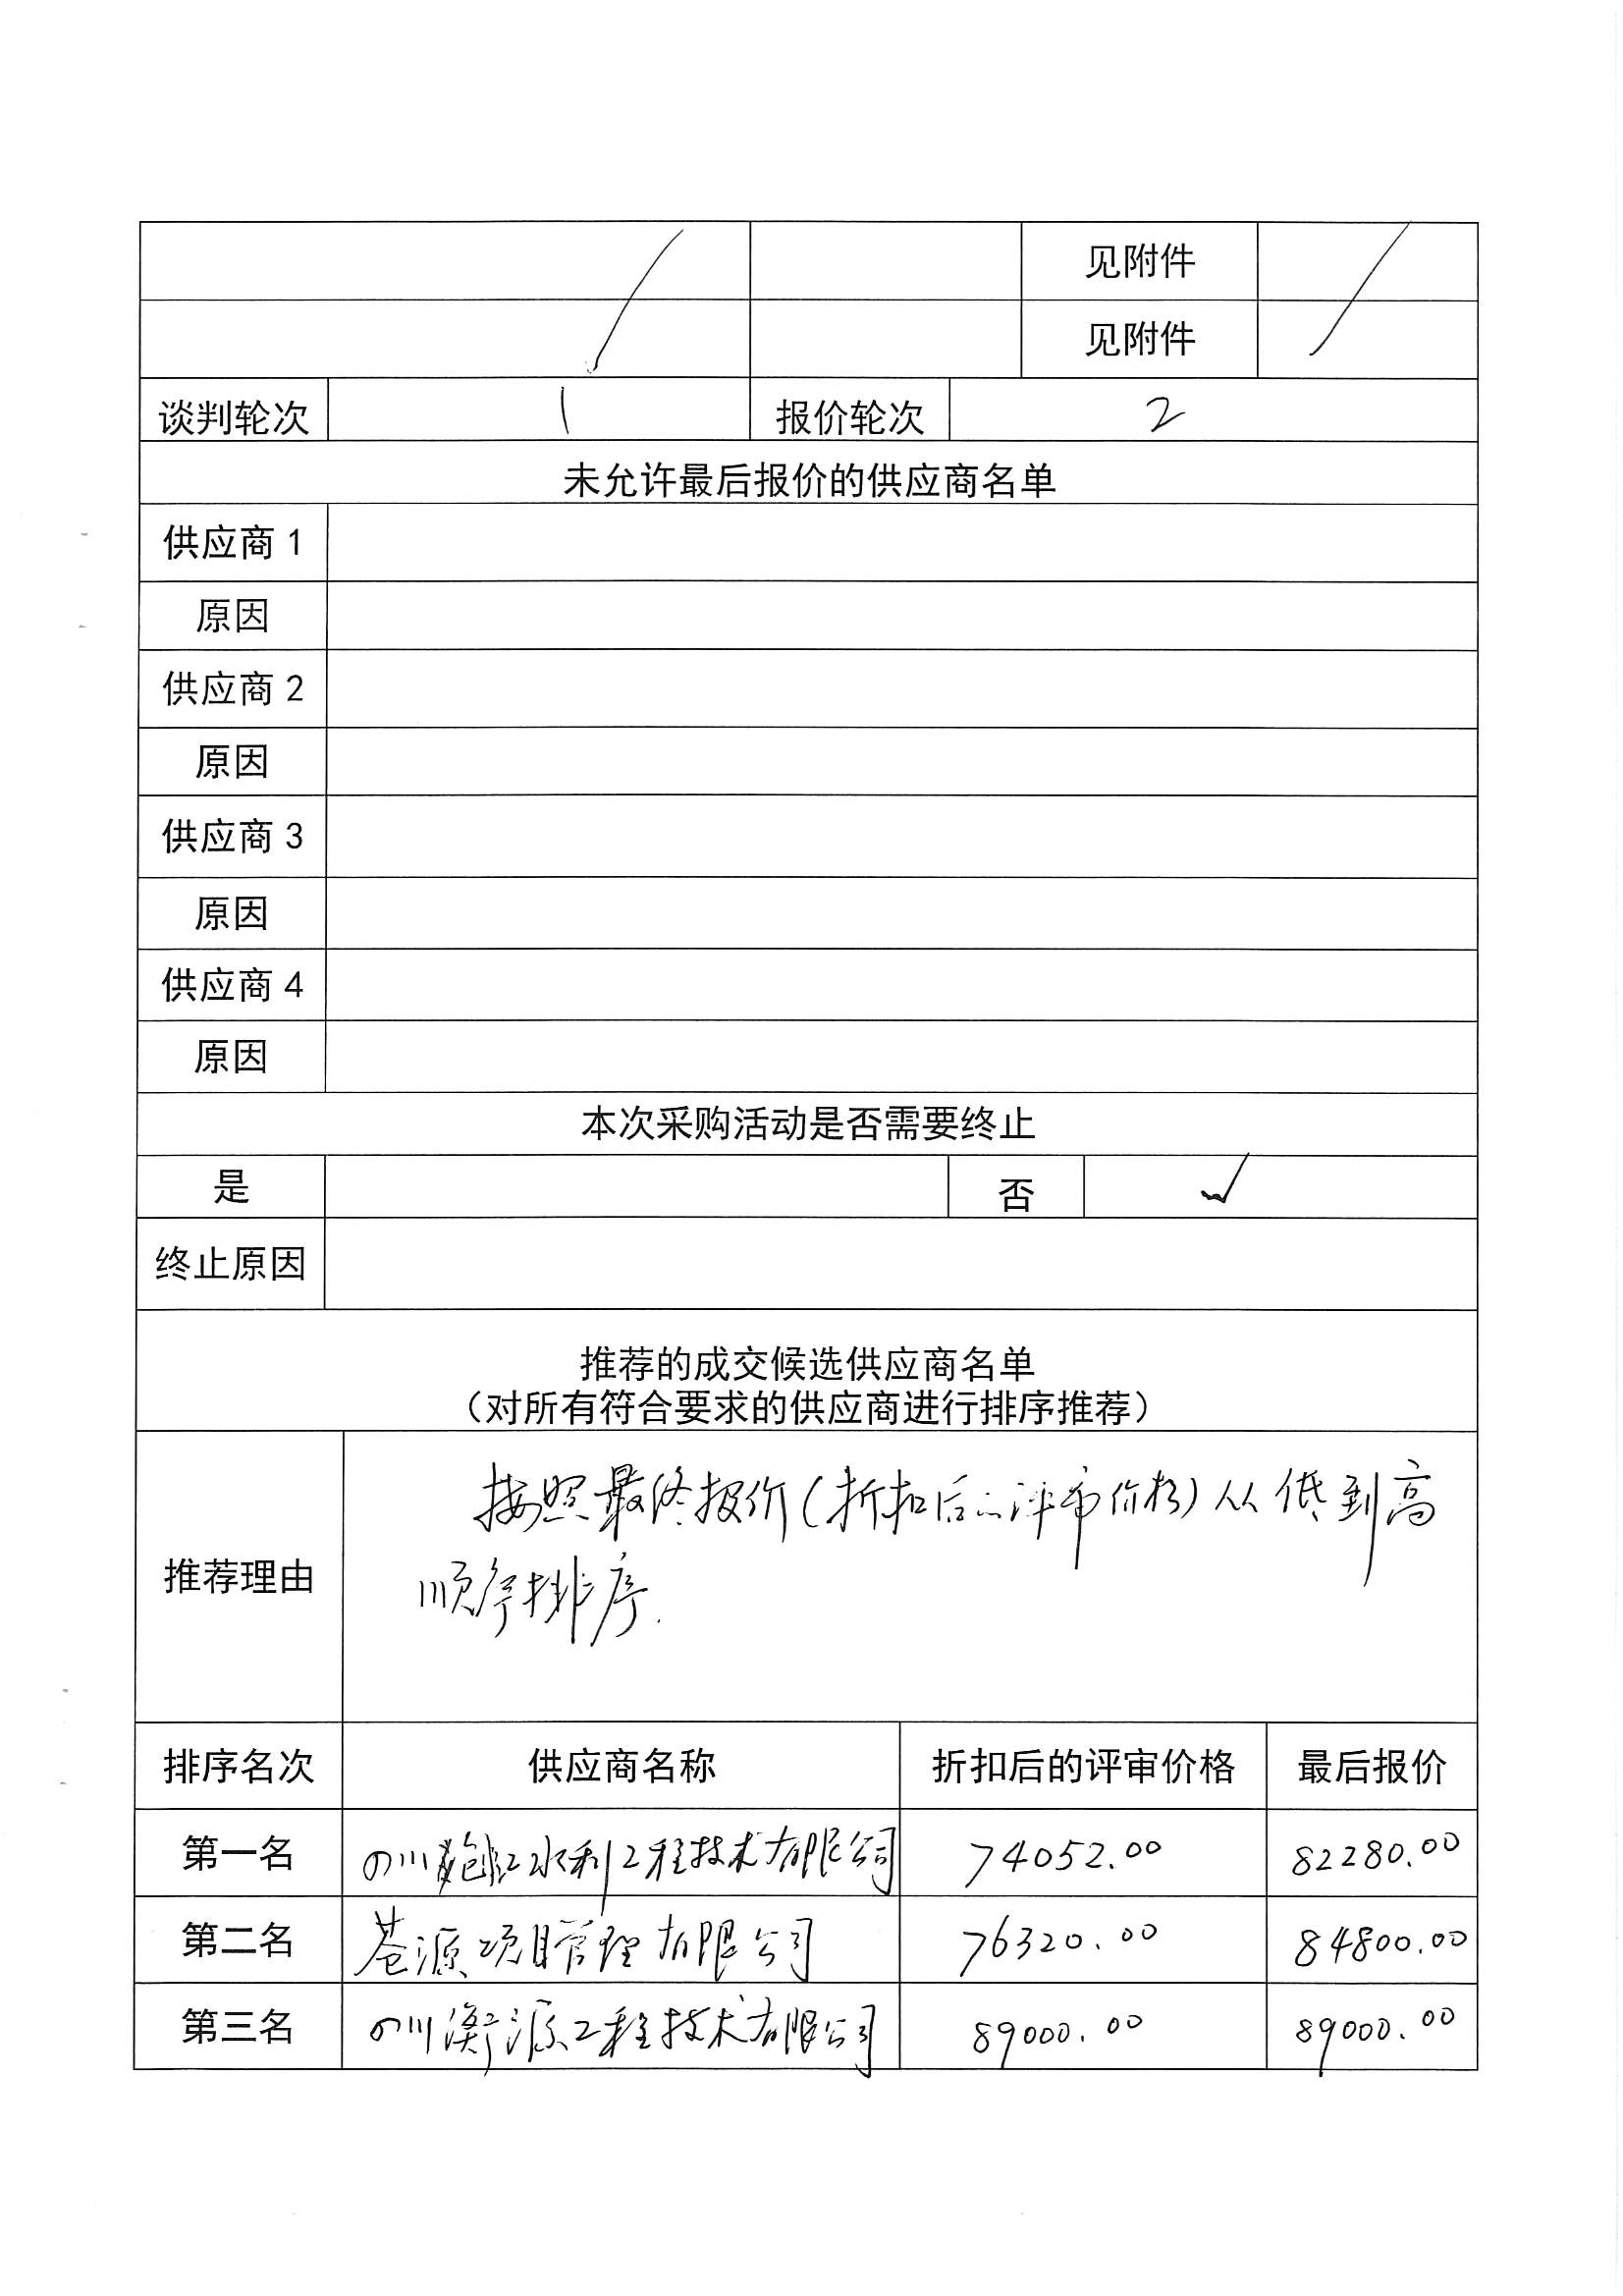 见附件
见附件
谈判轮次 1 报价轮次 2
未允许最后报价的供应商名单
供应商1
原因
供应商2
原因
供应商3
原因
供应商4
原因
本次采购活动是否需要终止
是 否 ✓
终止原因
推荐的成交候选供应商名单
（对所有符合要求的供应商进行排序推荐）
推荐理由
按照最终报价(折扣后的评审价格)从低到高
顺序排序.
排序名次 供应商名称 折扣后的评审价格 最后报价
第一名 四川 水利工程技术有限公司 74052.00 82280.00
第二名 苍源项目管理有限公司 76320.00 84800.00
第三名 四川 源工程技术有限公司 89000.00 89000.00